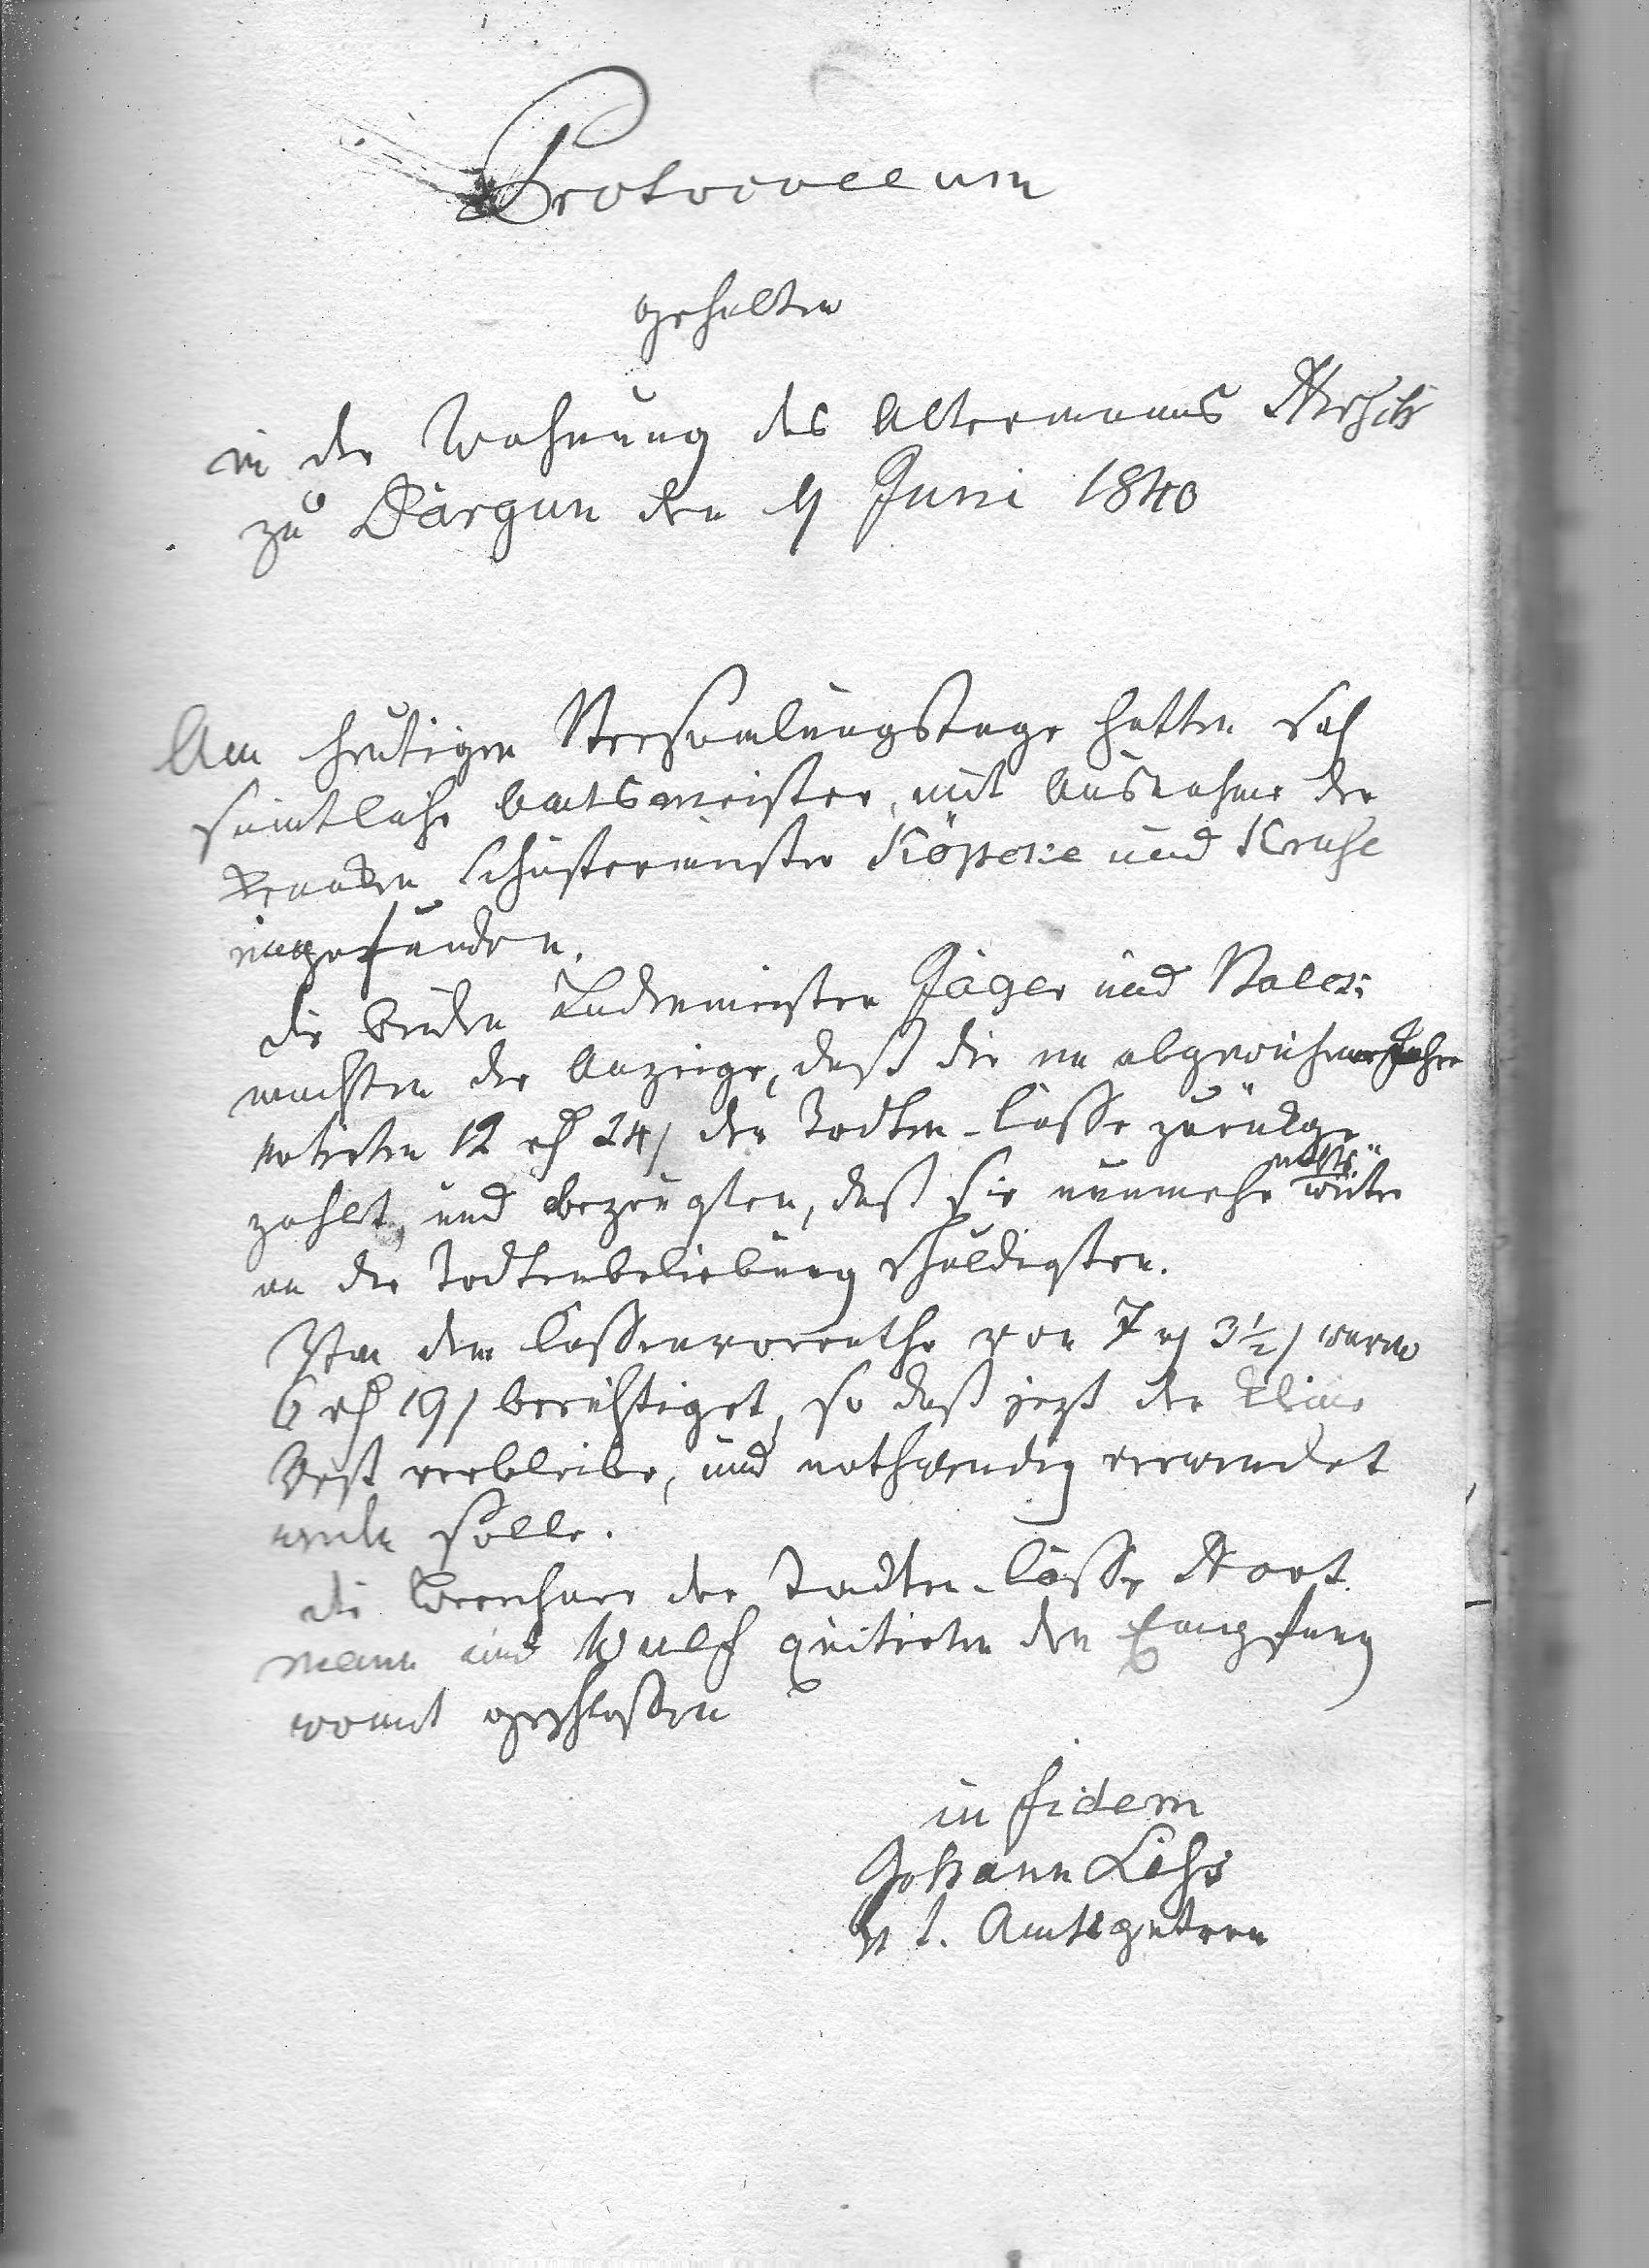 Protocollum
gehalten
in der Wohnung des Altermanns
zu Dargun den Juni 1840
Am heutigen Versamlungstage hatten sich
sämtliche Amtsmeister, mit Ausnahme der
kranken Schustermeister Köpcke und Kruse
eingefunden.
die beiden Lademeister Jäger und
machten die Anzeige, daß die im abgewichenen Jahre
notirten 12 rh 24 s der Todten-Casse zurückge
zahlt, und bezeugten, daß sie nunmehr nichts weiter
an der Todtenbeliebung schuldigten.
Von dem Cassenvorrathe von 7 rh 3½ s waren
6 rh 19 s berichtiget, so daß jezt der kleine
Rest verbleibe, und nothwendig verwendet
werden solle.
die der Todten-Casse
mann und Wulf quitirten den Empfang
womit geschloßen
in fidem
Johann